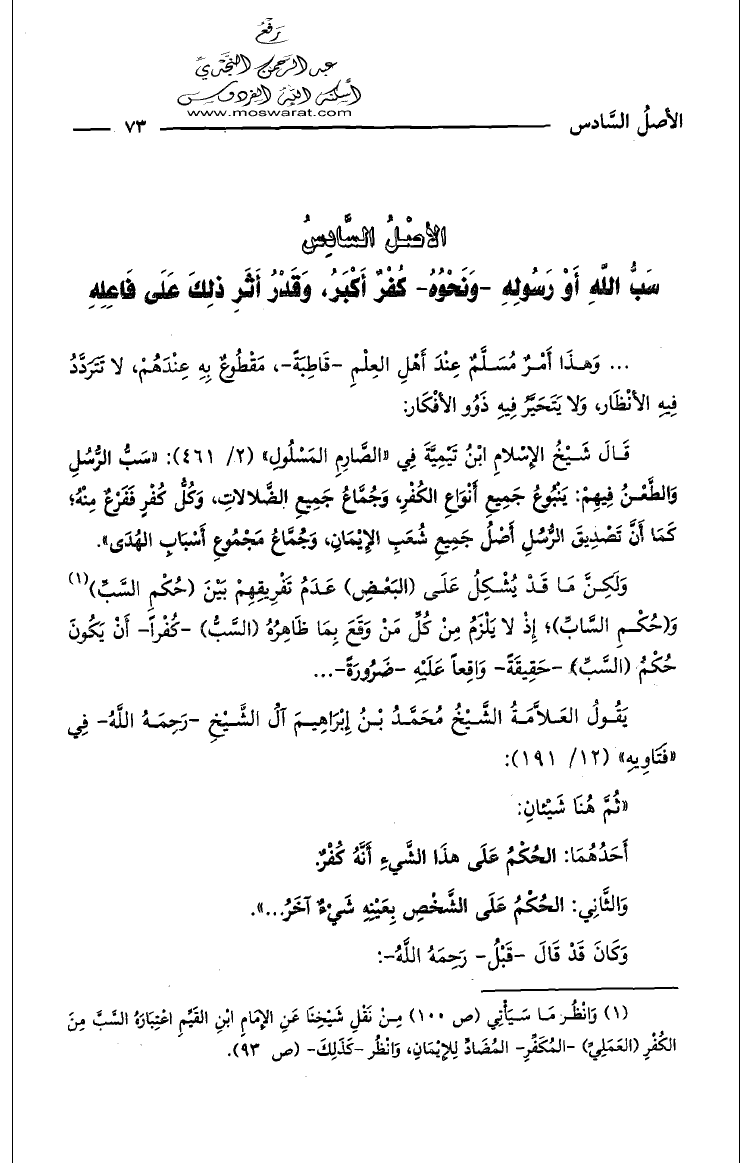 رَفْعُ
عبد الرحمن النجدي
أسكنه الله الفردوس
www.moswarat.com
الأصلُ السَّادس ٧٣
الأَصْلُ السَّادِسُ
سَبُّ اللَّهِ أَوْ رَسُولِهِ -وَنَحْوُهُ- كُفْرٌ أَكْبَرُ، وَقَدْرُ أَثَرِ ذلِكَ عَلَى فَاعِلِهِ
... وَهـذَا أَمْرٌ مُسَلَّمٌ عِنْدَ أَهْلِ العِلْمِ -قَاطِبَةً-، مَقْطُوعٌ بِهِ عِنْدَهُمْ، لا تَتَرَدَّدُ
فِيهِ الأَنْظَار، وَلا يَتَحَيَّرُ فِيهِ ذَوُو الأَفْكَار:
قَـالَ شَـيْخُ الإِسْلامِ ابْنُ تَيْمِيَّةَ فِي «الصَّارِمِ المَسْلُولِ» (٢/ ٤٦١): «سَبُّ الرُّسُلِ
وَالطَّعْـنُ فِيهِمْ: يَنْبُوعُ جَمِيعِ أَنْوَاعِ الكُفْرِ، وَجُمَّاعُ جَمِيعِ الضَّلالاتِ، وَكُلُّ كُفْرٍ فَفَرْعٌ مِنْهُ؛
كَمَا أَنَّ تَصْدِيقَ الرُّسُلِ أَصْلُ جَمِيعِ شُعَبِ الإِيْمَانِ، وَجُمَّاعُ مَجْمُوعِ أَسْبَابِ الهُدَى».
وَلكِـنَّ مَـا قَـدْ يُشْـكِلُ عَلَـى (البَعْـضِ) عَـدَمُ تَفْرِيقِهِمْ بَيْنَ (حُكْمِ السَّبِّ)(١)
وَ(حُكْـمِ السَّابِّ)؛ إِذْ لا يَلْزَمُ مِنْ كُلِّ مَنْ وَقَعَ بِمَا ظَاهِرُهُ (السَّبُّ) -كُفْراً- أَنْ يَكُونَ
حُكْمُ (السَّبِّ) -حَقِيقَةً- وَاقِعاً عَلَيْهِ -ضَرُورَةً-...
يَقُـولُ العَلاَّمَـةُ الشَّـيْخُ مُحَمَّـدُ بْـنُ إِبْرَاهِيـمَ آلُ الشَّـيْخِ -رَحِمَـهُ اللَّهُ- فِي
«فَتَاوِيهِ» (١٢/ ١٩١):
«ثُمَّ هُنَا شَيْئانِ:
أَحَدُهُمَا: الحُكْمُ عَلَى هذَا الشَّيءِ أَنَّهُ كُفْرٌ.
وَالثَّانِي: الحُكْمُ عَلَى الشَّخْصِ بِعَيْنِهِ شَيْءٌ آخَرُ...».
وَكَانَ قَدْ قَالَ -قَبْلُ- رَحِمَهُ اللَّهُ-:
(١) وَانْظُـر مَـا سَـيَأْتِي (ص ١٠٠) مِـنْ نَقْلِ شَيْخِنَا عَنِ الإِمَامِ ابْنِ القَيِّمِ اعْتِبَارَهُ السَّبَّ مِنَ
الكُفْرِ (العَمَلِيِّ) -المُكَفِّرِ- المُضَادِّ لِلإِيْمَانِ، وَانْظُر -كَذَلِكَ- (ص ٩٣).